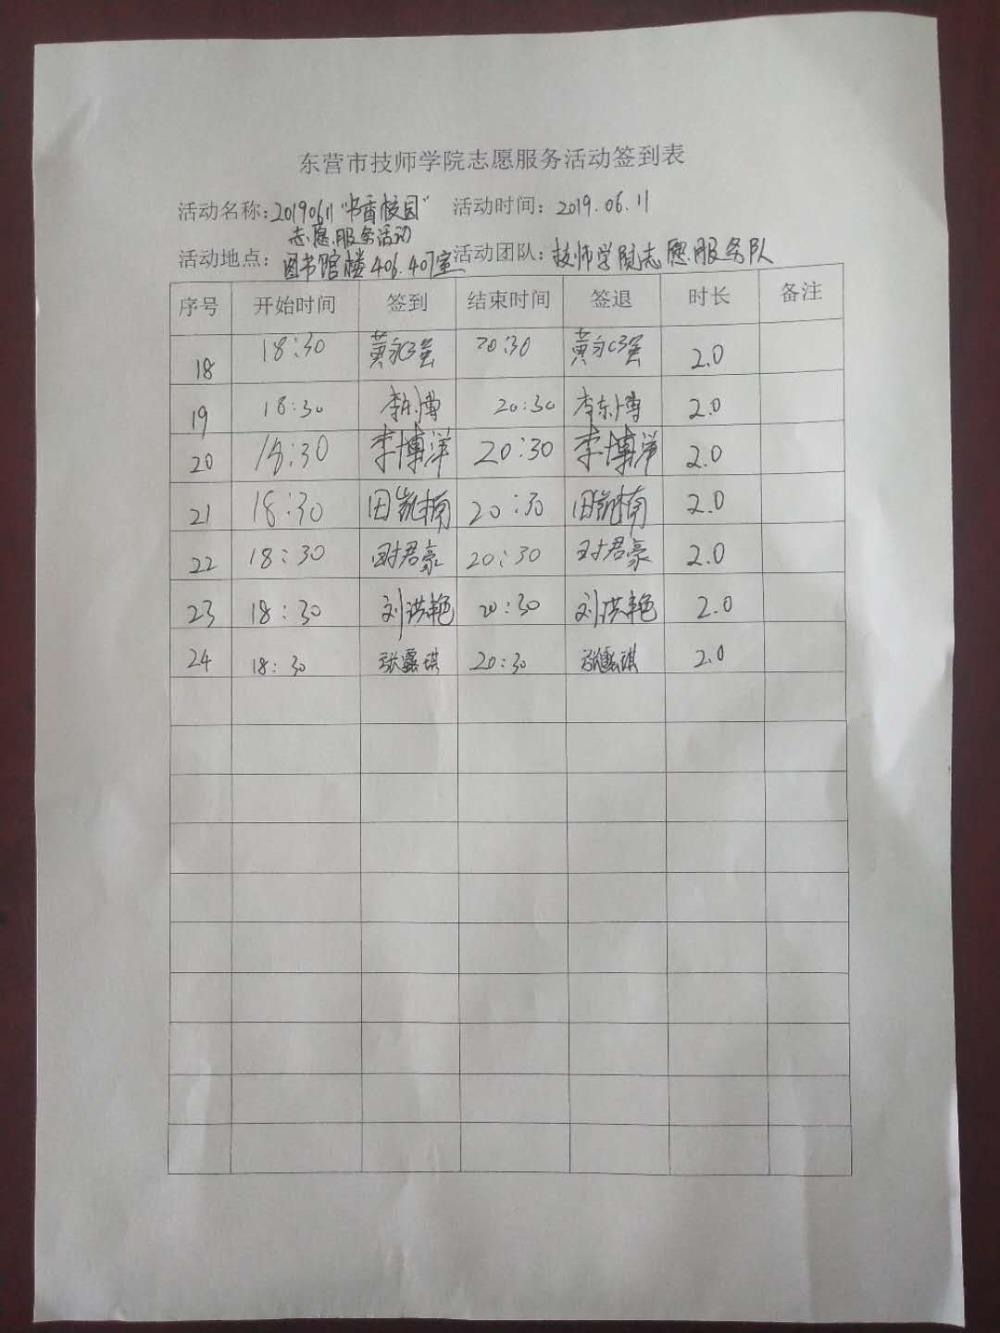 东营市技师学院志愿服务活动签到表
活动名称:20190611"书香校园" 活动时间:2019.06.11
志愿服务活动
活动地点:图书馆楼406.407室 活动团队:技师学院志愿服务队
序号 开始时间 签到 结束时间 签退 时长 备注
18 18:30 黄永强 20:30 黄永强 2.0
19 18:30 李东博 20:30 李东博 2.0
20 18:30 李博洋 20:30 李博洋 2.0
21 18:30 田凯楠 20:30 田凯楠 2.0
22 18:30 君豪 20:30 君豪 2.0
23 18:30 刘洪艳 20:30 刘洪艳 2.0
24 18:30 张露琪 20:30 张露琪 2.0